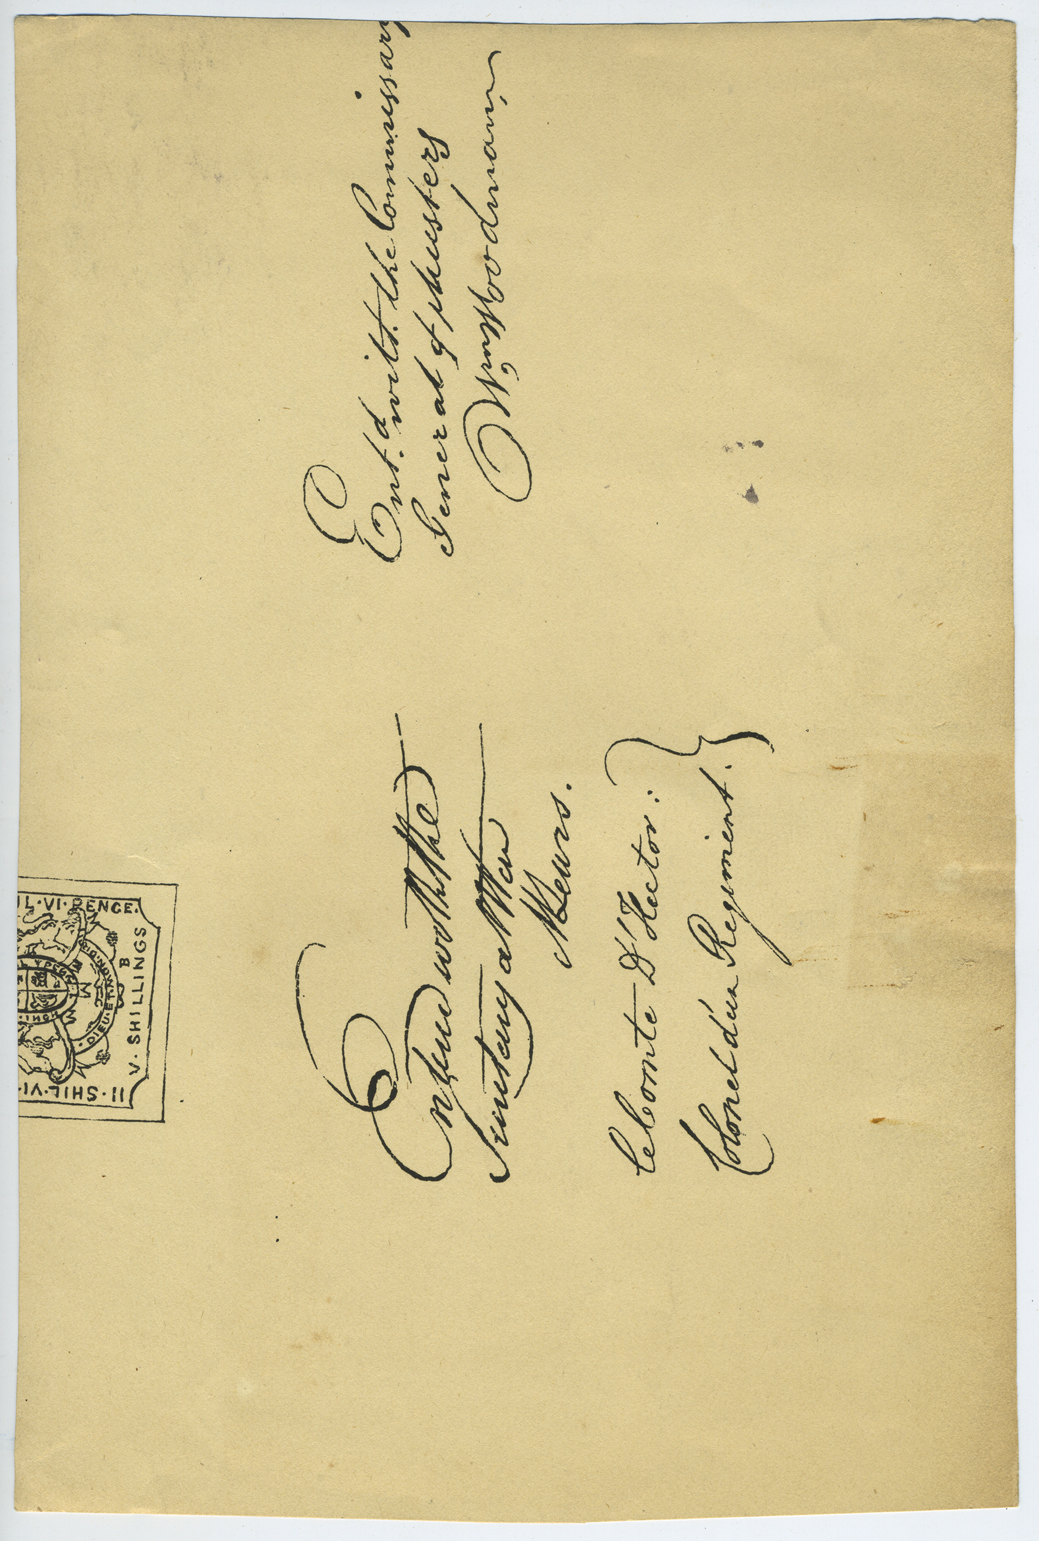 Entered with the
Secretary at War
M Lewis.
Le Comte D'Hector:
Colonel d'un Regiment.
Ent.d with the Commissary
General of Musters
Wm Woodman
IL·VI·PENCE.
V·SHILLINGS
II·SHIL·VI·
B
DIEU·ET·MON·